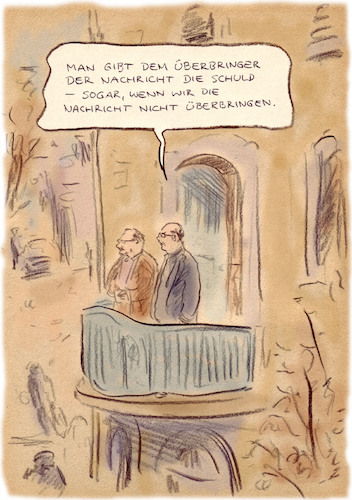 MAN GIBT DEM ÜBERBRINGER
DER NACHRICHT DIE SCHULD
— SOGAR, WENN WIR DIE
NACHRICHT NICHT ÜBERBRINGEN.